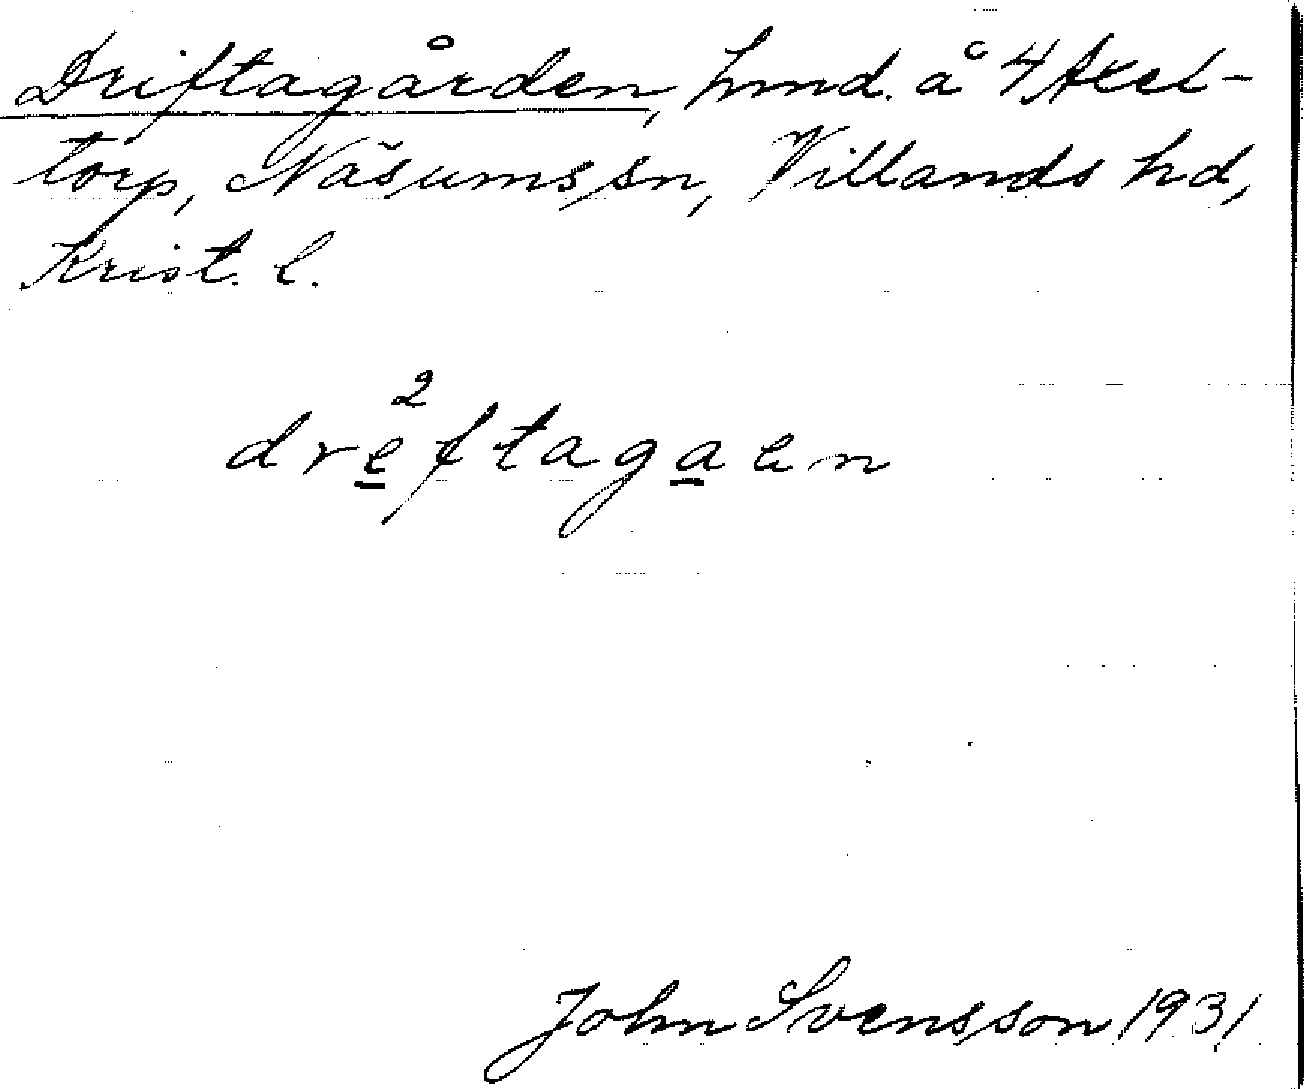 Driftagården, hmd. å 4 Axel-
torp, Näsums sn, Villands hd,
Krist. l.
2
dreftagaen
John Svensson 1931